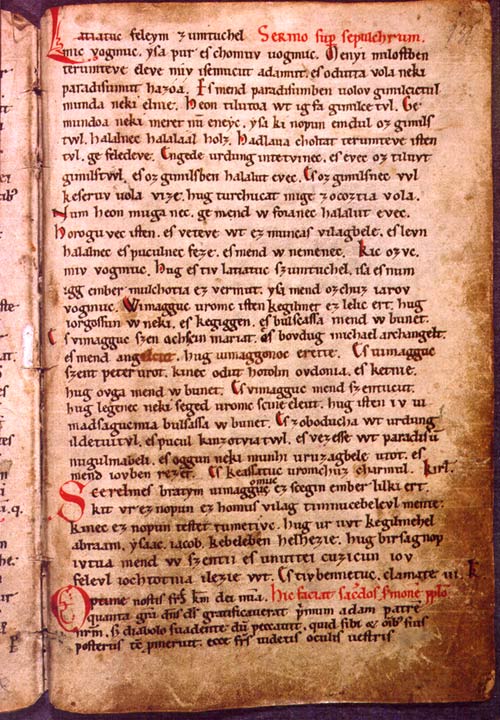 Latiatuc feleym zumtuchel Sermo sup sepulchrum.
mic vogmuc. ysa pur es chomuv uogmuc. Menyi milostben
terumteve eleve miv isemucut adamut. es odutta vola neki
paradisumut hazoa. Es mend paradisumben uolov gimilcictul
munda neki elnie. Heon tilutoa wt ig fa gimilce tvl. Ge
mundoa neki meret nu eneyc. ysa ki nopun emdul oz gimils
twl. halalnec halalaal holz. Hadlaua choltat terumteve isten
tvl. ge feledeve. Engede urdung intetvinec. es evec oz tiluvt
gimilstwl. es oz gimilsben halalut evec. Es oz gimilsnec vvl
keseruv uola vize. hug turchucat mige zocoztia vola.
Num heon muga nec. ge mend w foianec halalut evec.
Horogu vec isten. es veteve wt ez muncas vilagbele. es levn
halalnec es puculnec feze. es mend w nemenec. Kic ozvc.
miv vogmuc. Hug es tiv latiatuc szumtuchel. isa es num
igg ember mulchotia ez vermut. ysa mend ozchuz iarov
vogmuc. Wimagguc uromc isten kegilmet ez lelic ert. hug
iorgossun w neki. es kegiggen. es bulsassa mend w bunet.
Es vimagguc szen achscin mariat. es bovdug michael archangelt.
es mend angelcut. hug uimaggonoc erette. Es uimagguc
szent peter urot. kinec odut hotolm ovdonia. es ketnie.
hug ovga mend w bunet. Es vimagguc mend szentucut.
hug legenec neki seged uromc scine eleut. hug isten iv ui
madsagucmia bulsassa w bunet. Es zoboducha wt urdung
ildetuitvl. es pucul kinzotviatwl. es vezesse wt paradisu
nugulmabeli. es oggun neki munhi uruzagbele utot. es
mend iovben rezet. Es keassatuc uromchuz charmul. Kirl.
Scerelmes bratym uimagguc omuc ez scegin ember lilki ert.
kit vr ez nopun ez homus vilag timnucebelevl mente.
kinec ez nopun testet tumetivc. hug ur uvt kegilmehel
abraam. ysaac. iacob. kebeleben helhezie. hug birsagnop
ivtva mend w szentii es unuttei cuzicun iov
felevl iochtotnia ilezie wt. Es tivbennetvc. clamate iii. K
Optime nostis frs km dei mia. Hic faciat sacdos smone pplo
quanta gra dns ds gratificauerat primum adam patre
nrm. s diabolo suadente du peccauit. quid sibi et oib suis
posteris